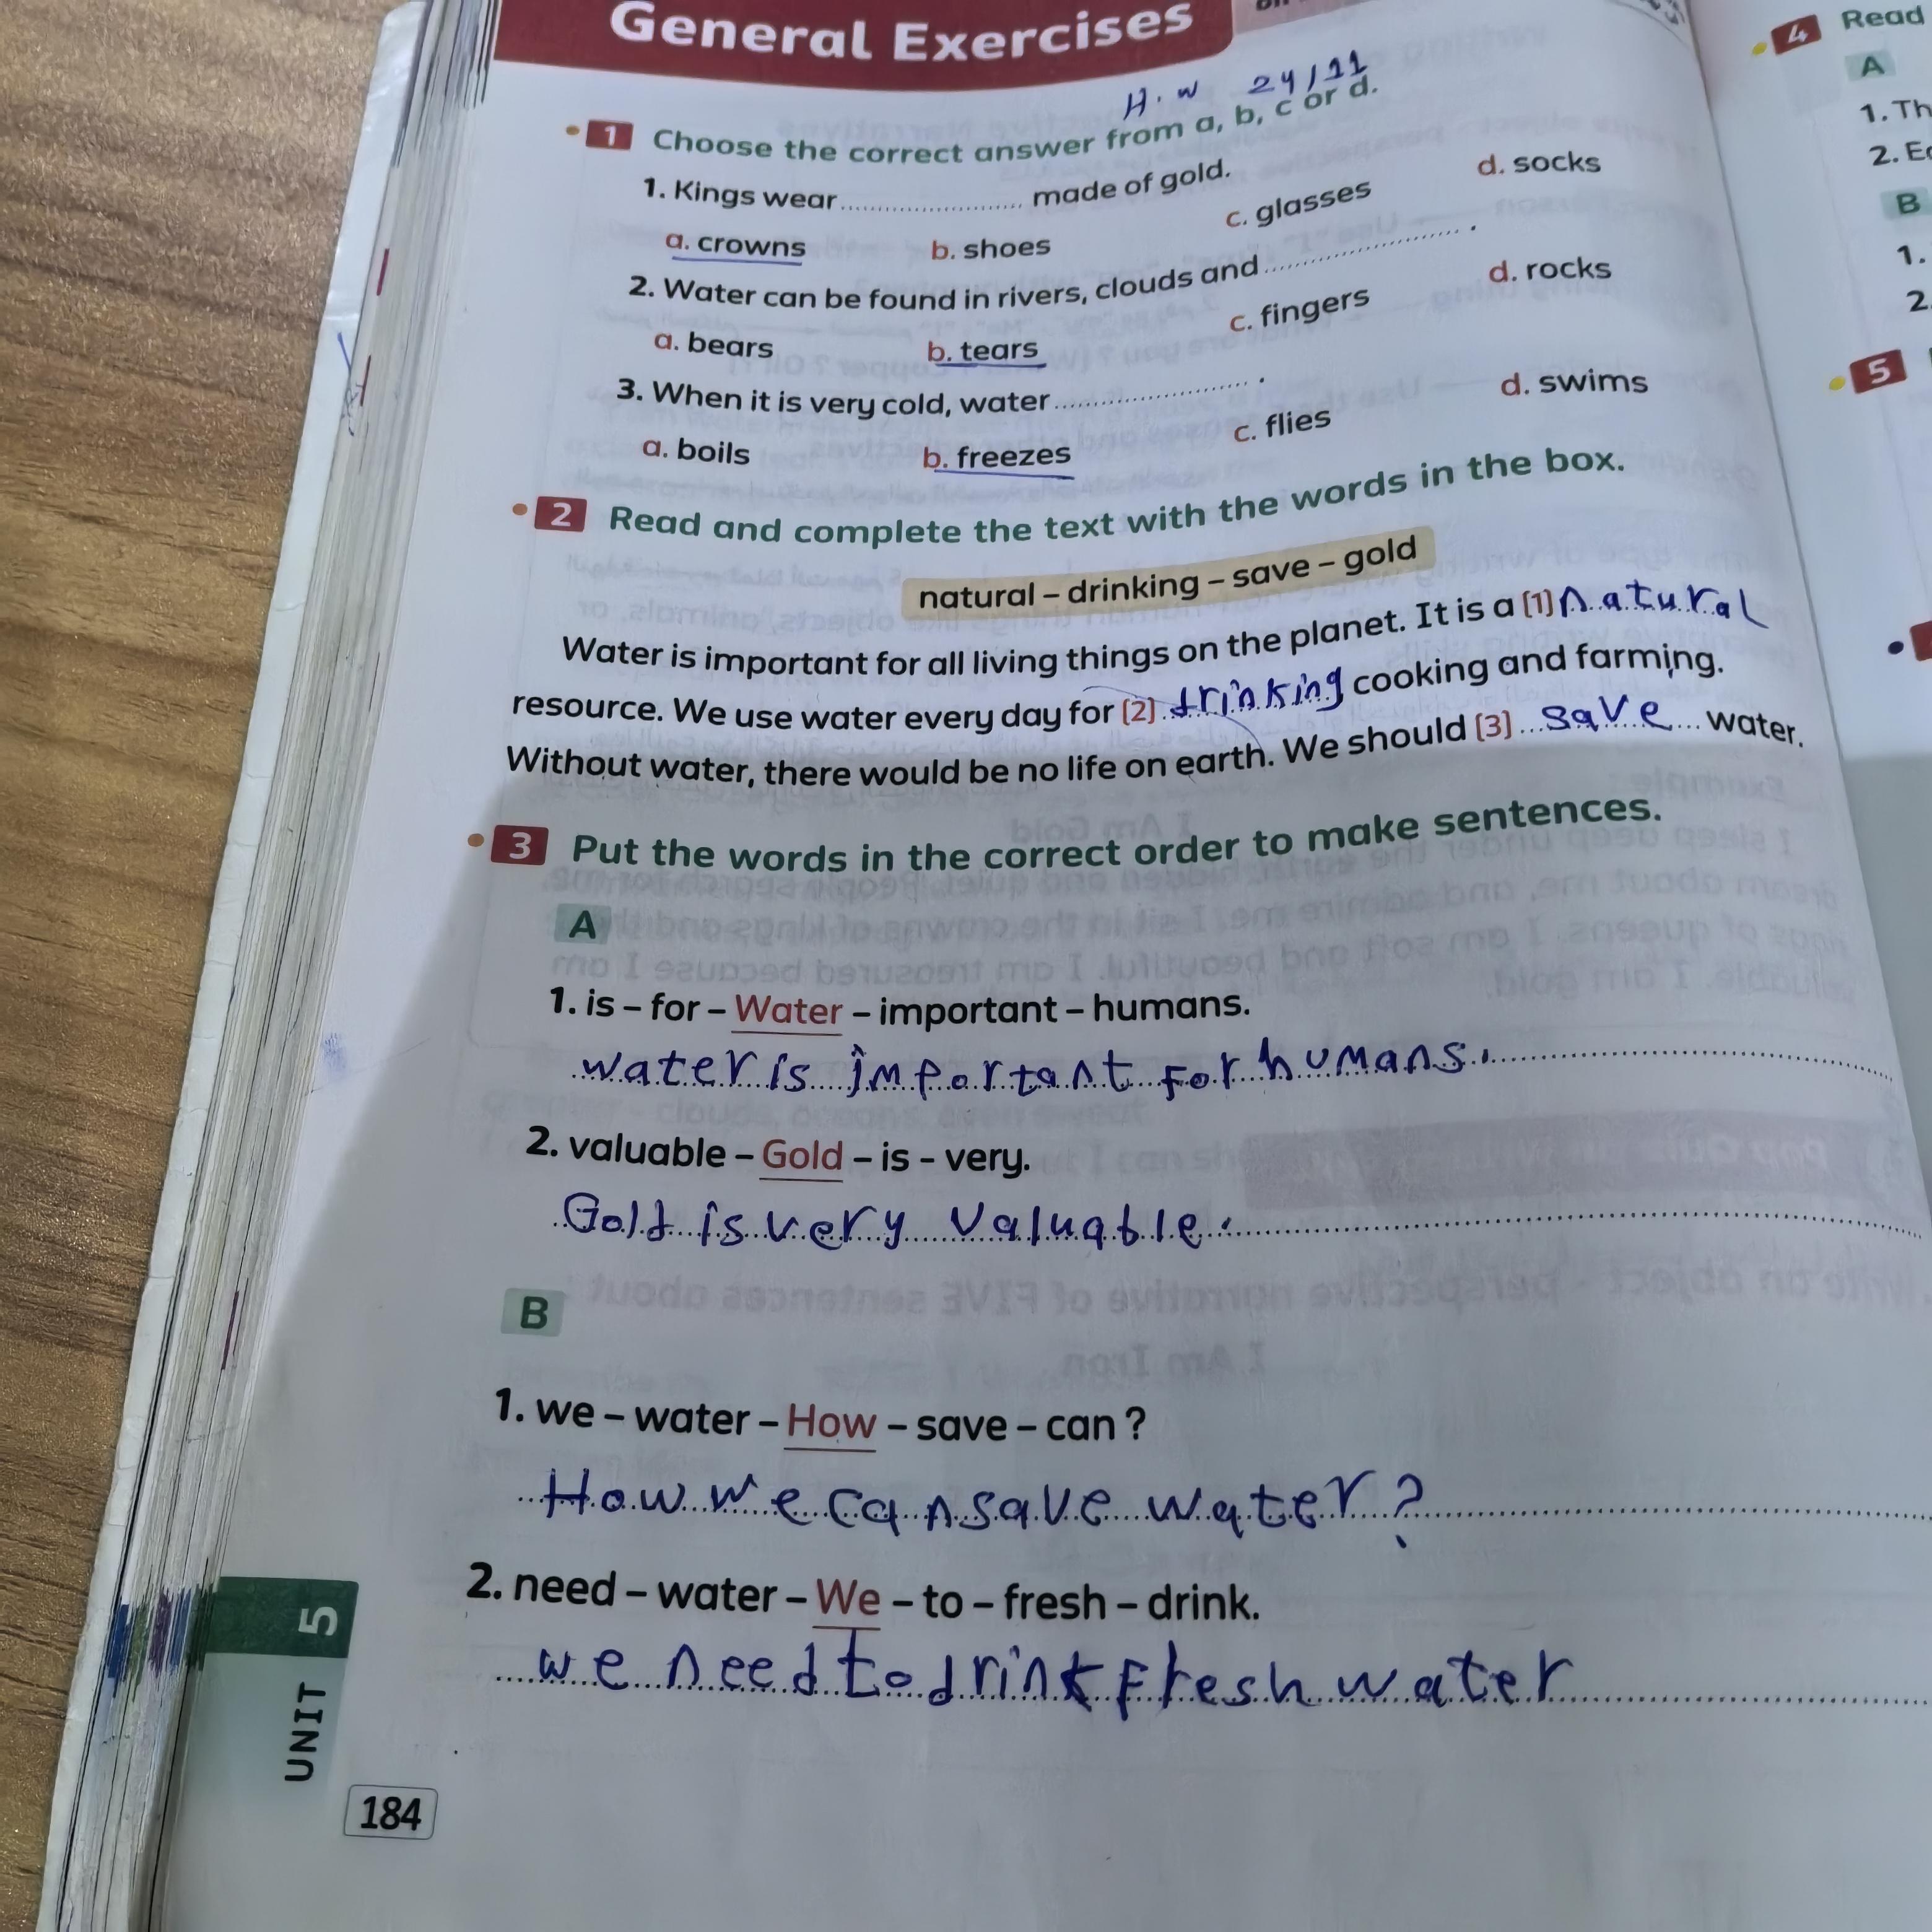 General Exercises
H.W 24/11
1 Choose the correct answer from a, b, c or d.
1. Kings wear ........................ made of gold.
a. crowns b. shoes c. glasses d. socks
2. Water can be found in rivers, clouds and ........................ .
a. bears b. tears c. fingers d. rocks
3. When it is very cold, water ........................ .
a. boils b. freezes c. flies d. swims
2 Read and complete the text with the words in the box.
natural – drinking – save – gold
Water is important for all living things on the planet. It is a (1) natural
resource. We use water every day for (2) drinking cooking and farming.
Without water, there would be no life on earth. We should (3) save water.
3 Put the words in the correct order to make sentences.
A
1. is – for – Water – important – humans.
water is important for humans.
2. valuable – Gold – is – very.
Gold is very valuable.
B
1. we – water – How – save – can ?
How we can save water ?
2. need – water – We – to – fresh – drink.
we need to drink fresh water
UNIT 5
184
4 Read
A
1. Th
2.
B
1.
2
5